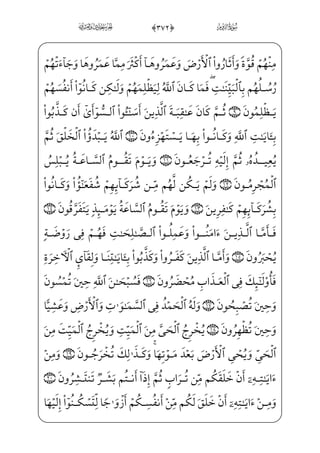 ﴿٣٧٢﴾
مِنْهُمْ قُوَّةً وَأَثَارُوا۟ ٱلْأَرْضَ وَعَمَرُوهَآ أَكْثَرَ مِمَّا عَمَرُوهَا وَجَآءَتْهُمْ
رُسُلُهُم بِٱلْبَيِّنَٰتِ ۖ فَمَا كَانَ ٱللَّهُ لِيَظْلِمَهُمْ وَلَٰكِن كَانُوٓا۟ أَنفُسَهُمْ
يَظْلِمُونَ ﴿٩﴾ ثُمَّ كَانَ عَٰقِبَةَ ٱلَّذِينَ أَسَٰٓـُٔوا۟ ٱلسُّوٓأَىٰٓ أَن كَذَّبُوا۟
بِـَٔايَٰتِ ٱللَّهِ وَكَانُوا۟ بِهَا يَسْتَهْزِءُونَ ﴿١٠﴾ ٱللَّهُ يَبْدَؤُا۟ ٱلْخَلْقَ ثُمَّ
يُعِيدُهُۥ ثُمَّ إِلَيْهِ تُرْجَعُونَ ﴿١١﴾ وَيَوْمَ تَقُومُ ٱلسَّاعَةُ يُبْلِسُ
ٱلْمُجْرِمُونَ ﴿١٢﴾ وَلَمْ يَكُن لَّهُم مِّن شُرَكَآئِهِمْ شُفَعَٰٓؤُا۟ وَكَانُوا۟
بِشُرَكَآئِهِمْ كَٰفِرِينَ ﴿١٣﴾ وَيَوْمَ تَقُومُ ٱلسَّاعَةُ يَوْمَئِذٍ يَتَفَرَّقُونَ ﴿١٤﴾
فَأَمَّا ٱلَّذِينَ ءَامَنُوا۟ وَعَمِلُوا۟ ٱلصَّٰلِحَٰتِ فَهُمْ فِى رَوْضَةٍ
يُحْبَرُونَ ﴿١٥﴾ وَأَمَّا ٱلَّذِينَ كَفَرُوا۟ وَكَذَّبُوا۟ بِـَٔايَٰتِنَا وَلِقَآئِ ٱلْءَاخِرَةِ
فَأُو۟لَٰٓئِكَ فِى ٱلْعَذَابِ مُحْضَرُونَ ﴿١٦﴾ فَسُبْحَٰنَ ٱللَّهِ حِينَ تُمْسُونَ
وَحِينَ تُصْبِحُونَ ﴿١٧﴾ وَلَهُ ٱلْحَمْدُ فِى ٱلسَّمَٰوَٰتِ وَٱلْأَرْضِ وَعَشِيًّا
وَحِينَ تُظْهِرُونَ ﴿١٨﴾ يُخْرِجُ ٱلْحَىَّ مِنَ ٱلْمَيِّتِ وَيُخْرِجُ ٱلْمَيِّتَ مِنَ
ٱلْحَىِّ وَيُحْىِ ٱلْأَرْضَ بَعْدَ مَوْتِهَا ۚ وَكَذَٰلِكَ تُخْرَجُونَ ﴿١٩﴾ وَمِنْ
ءَايَٰتِهِۦٓ أَنْ خَلَقَكُم مِّن تُرَابٍ ثُمَّ إِذَآ أَنتُم بَشَرٌ تَنتَشِرُونَ ﴿٢٠﴾
وَمِنْ ءَايَٰتِهِۦٓ أَنْ خَلَقَ لَكُم مِّنْ أَنفُسِكُمْ أَزْوَٰجًا لِّتَسْكُنُوٓا۟ إِلَيْهَا